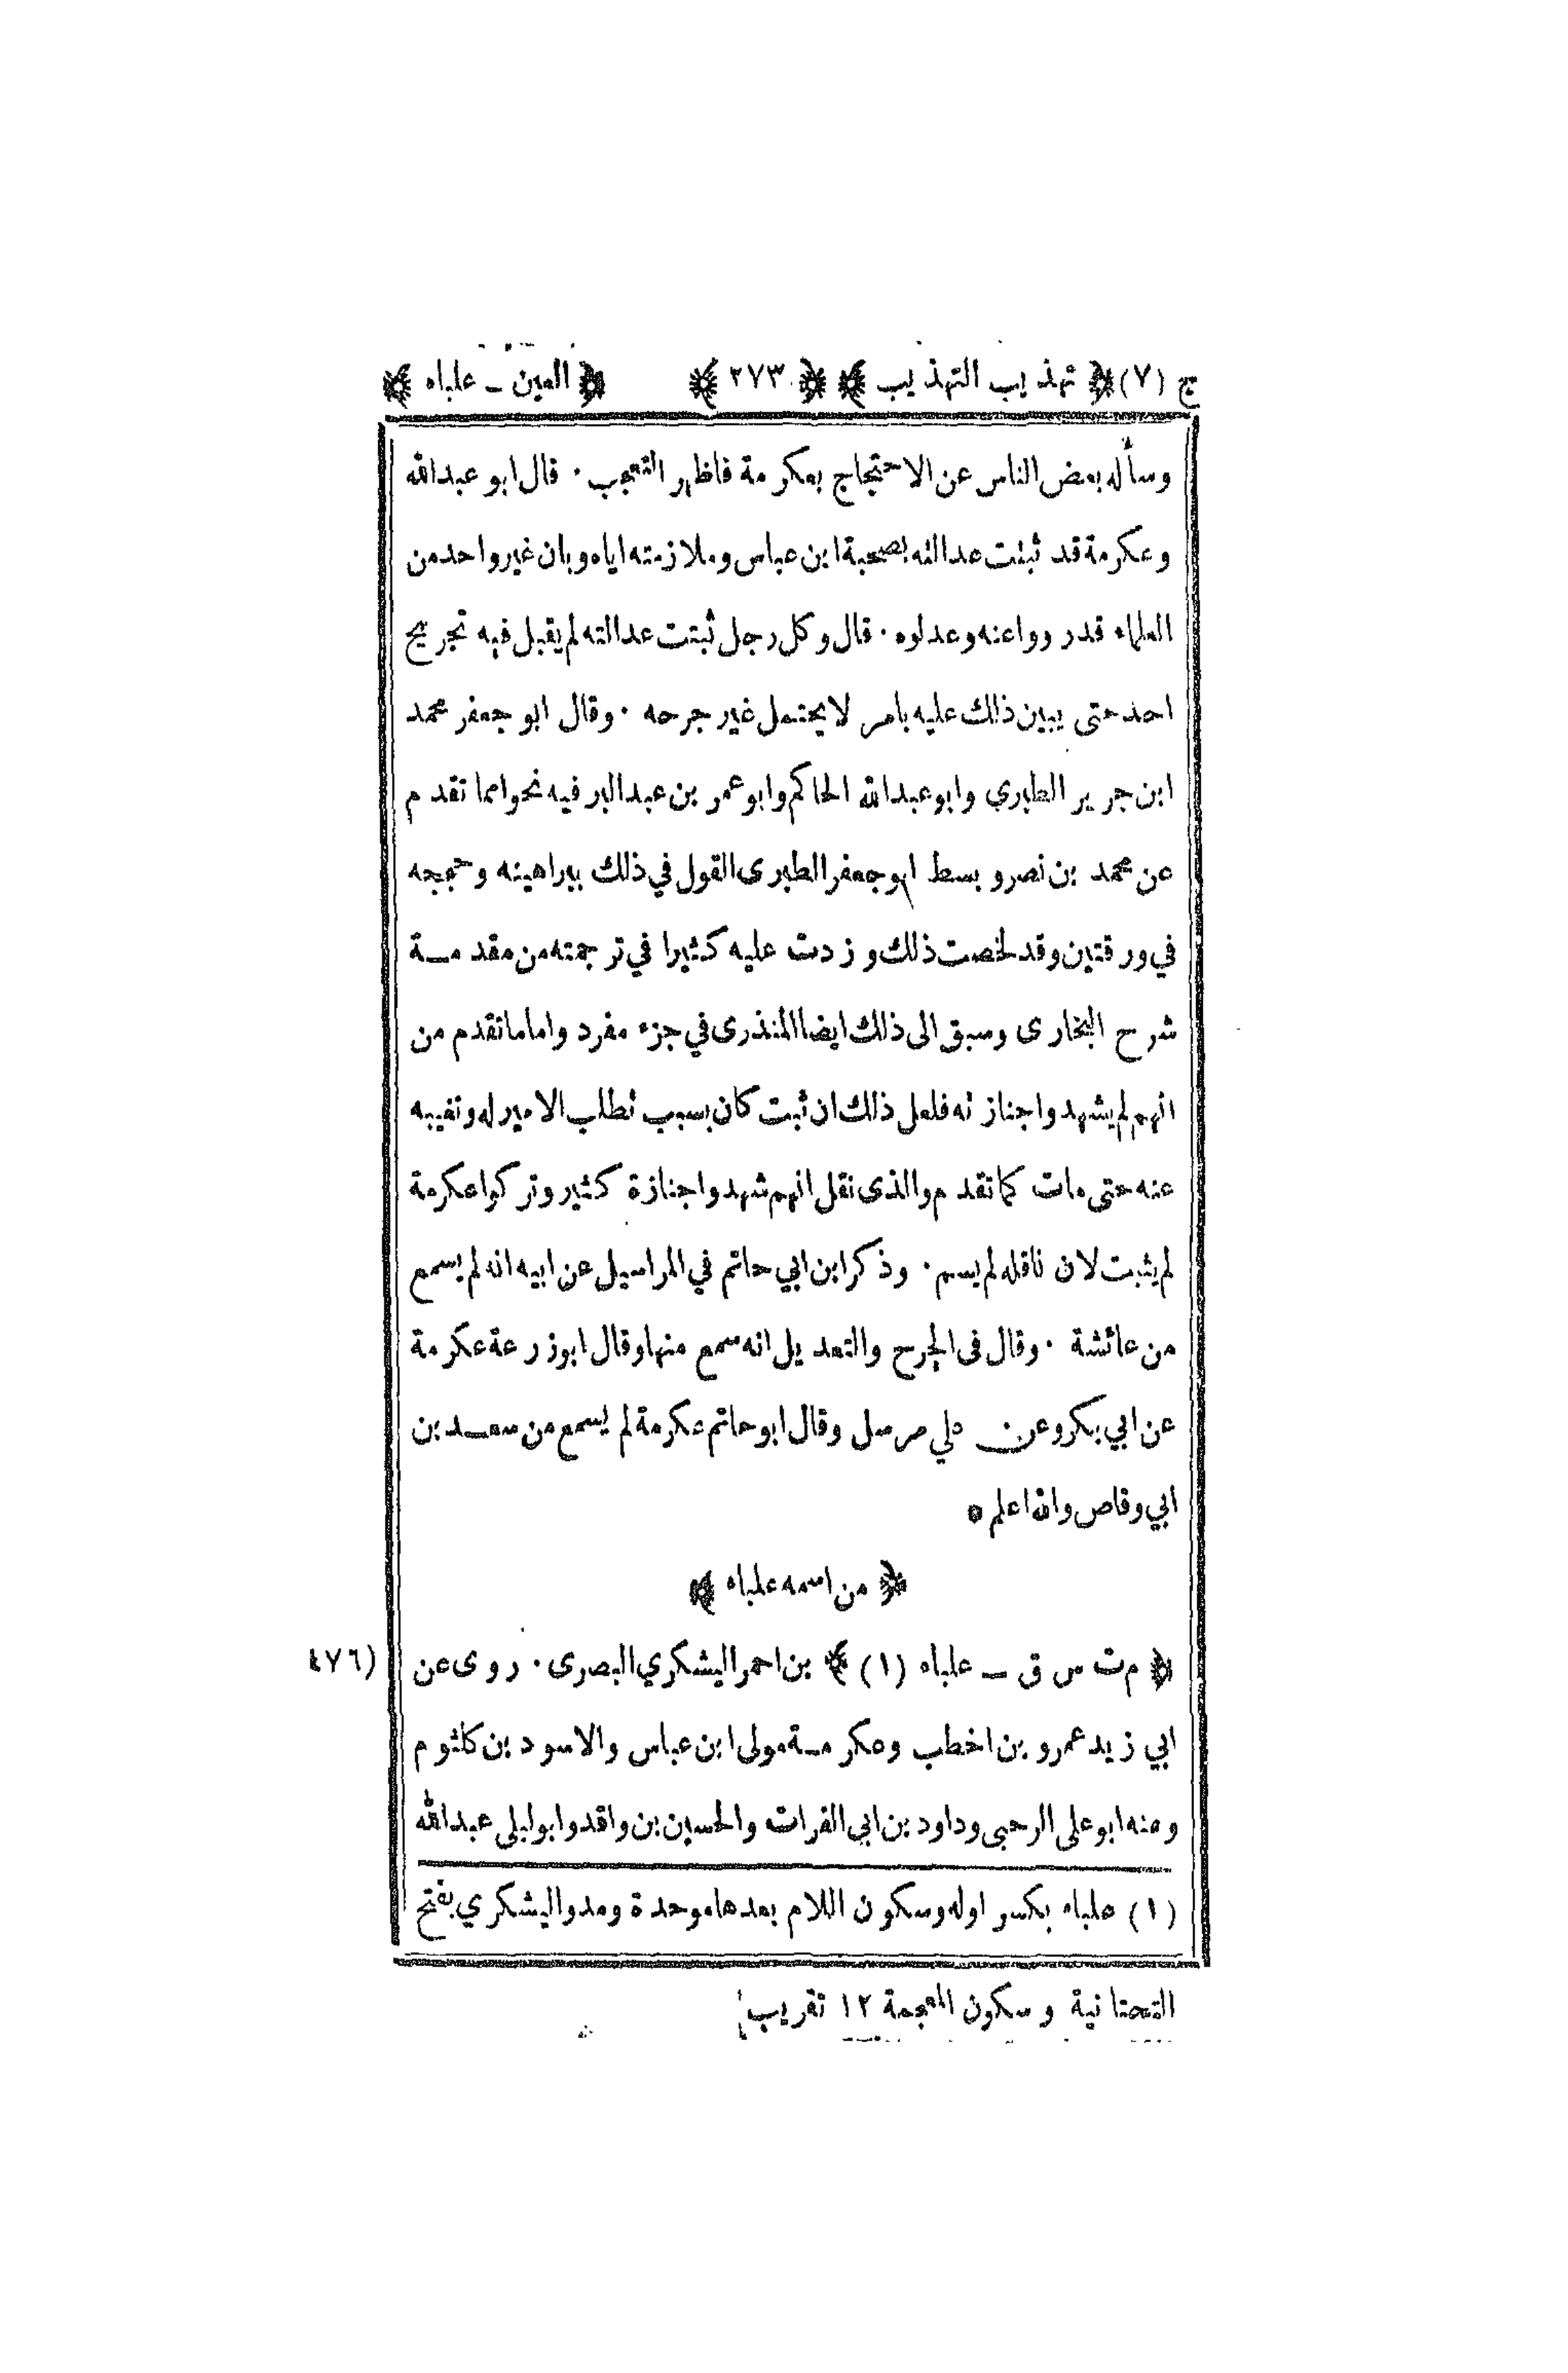 ج (٧) ﴿ تهذيب التهذيب ﴾ ﴿ ٢٧٣ ﴾ ﴿ العين ـ علباء ﴾
وسأله بعض الناس عن الاحتجاج بعكرمة فاظهر التعجب ٠ قال ابو عبدالله
وعكرمة قد ثبتت عدالته بصحبة ابن عباس وملازمته اياه وبان غير واحد من
العلماء قدر وواعنه وعدلوه ٠ قال وكل رجل ثبتت عدالته لم يقبل فيه تجريح
احد حتى يبين ذلك عليه بامر لا يحتمل غير جرحه ٠ وقال ابو جعفر محمد
ابن جرير الطبري وابوعبدالله الحاكم وابوعمر بن عبدالبر فيه نحوا مما تقدم
عن محمد بن نصر و بسط ابوجعفر الطبرى القول في ذلك ببراهينه وحججه
في ورقتين وقد لخصت ذلك وزدت عليه كثيرا في ترجمته من مقدمـة
شرح البخارى وسبق الى ذلك ايضا المنذرى في جزء مفرد واما ماتقدم من
انهم لم يشهدوا جنازته فلعل ذلك ان ثبت كان بسبب تطلب الامير له وتغيبه
عنه حتى مات كما تقدم والذى نقل انهم شهدوا جنازة كثير وتركوا عكرمة
لم يثبت لان ناقله لم يسم ٠ وذكر ابن ابي حاتم في المراسيل عن ابيه انه لم يسمع
من عائشة ٠ وقال فى الجرح والتعديل انه سمع منها وقال ابوزرعة عكرمة
عن ابي بكر وعن علي مرسل وقال ابوحاتم عكرمة لم يسمع من سعـد بن
ابي وقاص والله اعلم *
﴿ من اسمه علباء ﴾
﴿ م ت س ق ـ علباء (١) ﴾ بن احمر اليشكري البصرى ٠ روى عن
(٤٧٦)
ابي زيد عمرو بن اخطب وعكرمـة مولى ابن عباس والاسود بن كلثوم
ومنه ابوعلى الرحبى وداود بن ابي الفرات والحسين بن واقد وابوليلى عبدالله
(١) علباء بكسر اوله وسكون اللام بعدها موحدة ومد واليشكري بفتح
التحتانية وسكون المعجمة ١٢ تقريب